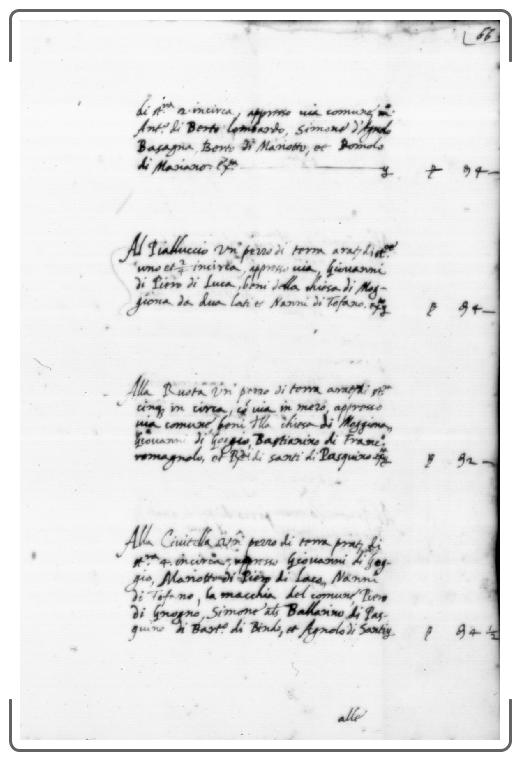 66
di st.ra 2 incirca, appresso via comune, m.
Ant.o di Berto lombardo, Simone d'Agnolo
Basagna, Berto di Mariotto, et Romolo
di Mariano.
Al Pialluccio Un pezzo di terra arat. di st.re
uno et incirca, appresso via, Giovanni
di Piero di Luca, beni della chiesa di Mog-
giona da dua lati et Nanni di Tofano.
Alla Ruota Un pezzo di terra arat. di st.ra
cinq, in circa, via in mezo, appresso
via comune, beni d lla chiesa di Moggiona,
Giovanni di Goggio, Bastianino di Franc.o
romagnolo, et di santi di Pasquino
Alla Civitella Un pezzo di terra prat. di
st.ra 4. incirca, appresso Giovanni di Gog-
gio, Mariotto di Piero di Laco, Nanni
di Tofano, la macchia del comune, Piero
di Gnogno, Simone als Ballarino di Pas-
quino di Bart.o di Bindo, et Agnolo di Santi
alle